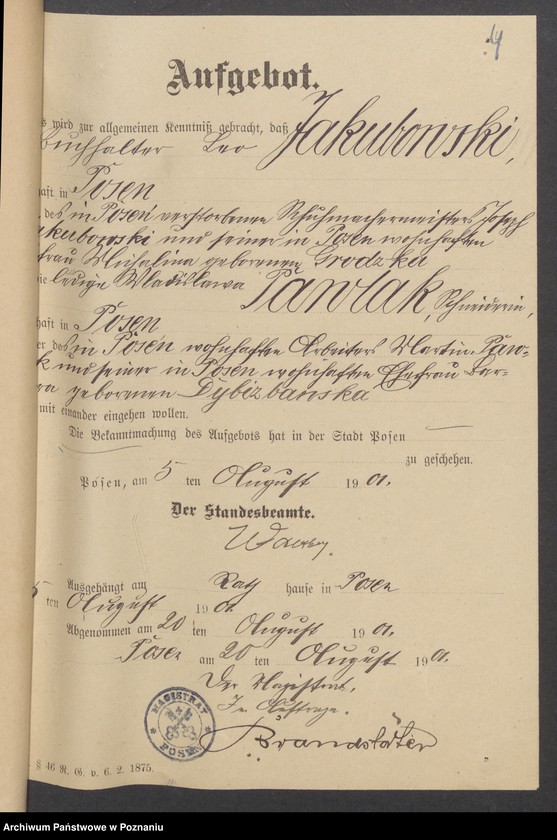 4
Aufgebot.
s wird zur allgemeinen Kenntniß gebracht, daß
Buchhalter Leo Jakubowski,
haft in Posen
des in Posen verstorbenen Schuhmachermeisters Joseph
akubowski und seiner in Posen wohnhaften
frau geborenen Grodzka
ie ledige Wladislawa Pawlak, Schneiderin,
haft in Posen
er des in Posen wohnhaften Arbeiters Martin Paw-
k und seiner in Posen wohnhaften Ehefrau Bar-
ra geborenen Dybizbanska
mit einander eingehen wollen.
Die Bekanntmachung des Aufgebots hat in der Stadt Posen
zu geschehen.
Posen, am 5 ten August 1901.
Der Standesbeamte.
Ausgehängt am Rath hause in Posen
5 ten August 1901
Abgenommen am 20 ten August 1901.
Posen am 20 ten August 1901.
Der Magistrat.
Im Auftrage.
Brandstäter
MAGISTRAT
POSEN
§ 46 R. G. v. 6. 2. 1875.
Archiwum Państwowe w Poznaniu